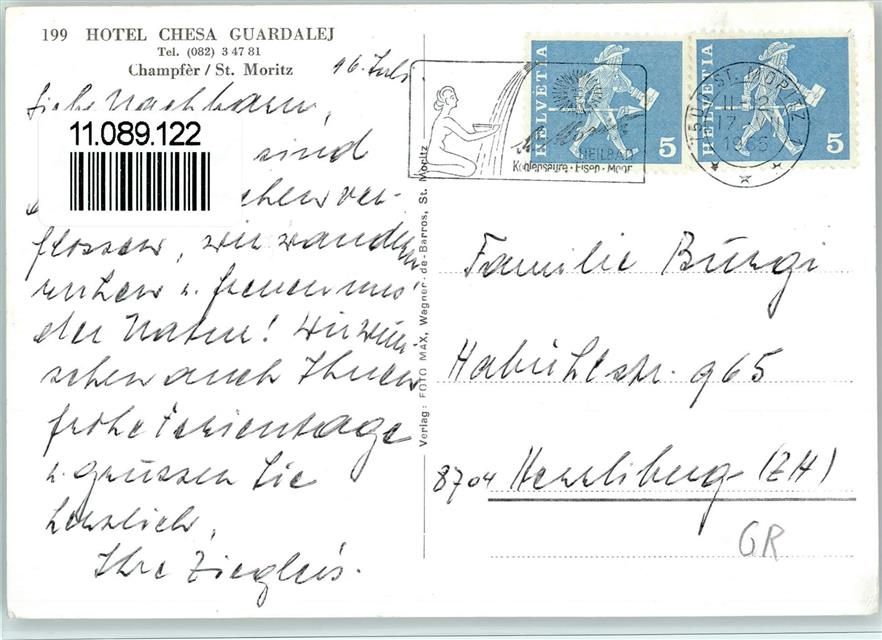 199 HOTEL CHESA GUARDALEJ
Tel. (082) 3 47 81
Champfèr / St. Moritz
16. Juli
Liebe Nachbarn,
11.089.122
sind
chen ver-
flossen, wir wandern
ruhen u. freuen uns
der Natur! Wir wün-
schen auch Ihnen
frohe Ferientage
u. grüssen Sie
herzlich,
Ihre Zieglers.
Verlag: FOTO MAX, Wagner-de-Barros, St. Moritz
HELVETIA 5
HELVETIA 5
St. Moritz
HEILBAD
Kohlensäure · Eisen · Moor
ST. MORITZ 1
17.
Familie Bürgi
Habühlstr. 965
8704 Herrliberg (ZH)
GR